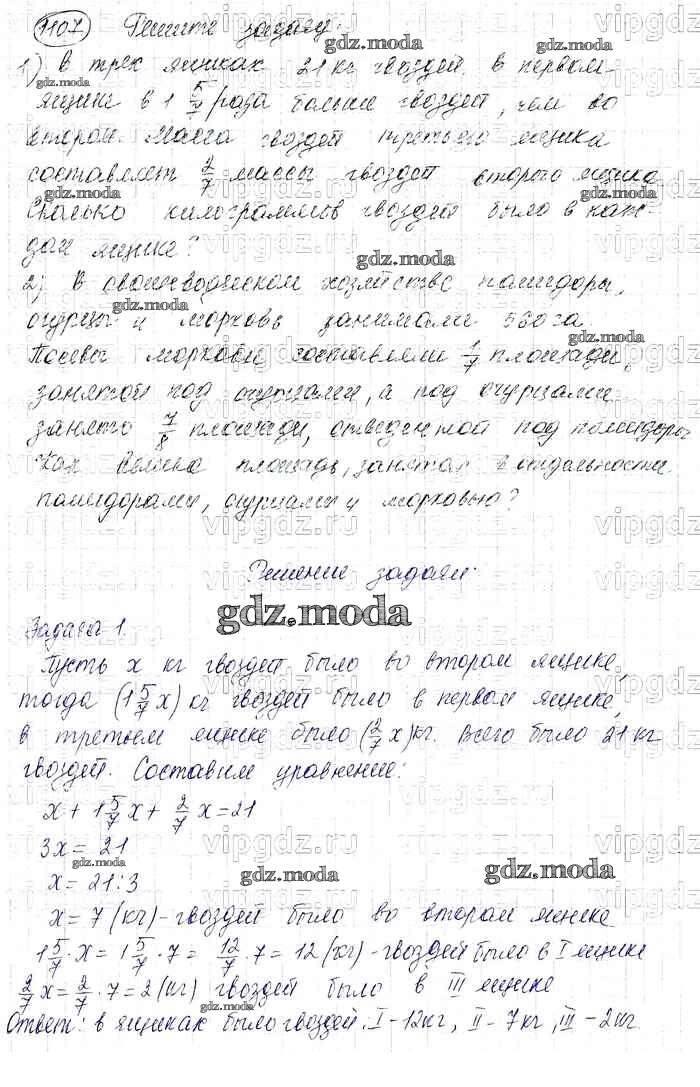 1107 Решите задачу:
1) В трех ящиках 21 кг гвоздей. В первом
ящике в 1 5/7 раза больше гвоздей, чем во
втором. Масса гвоздей третьего ящика
составляет 2/7 массы гвоздей второго ящика
Сколько килограммов гвоздей было в каж-
дом ящике?
2) В овощеводческом хозяйстве помидоры,
огурцы и морковь занимали 530 га.
Посевы моркови составляли 1/7 площади,
занятой под огурцами, а под огурцами
занято 7/8 площади, отведенной под помидоры
Как велика площадь, занятая в отдельности
помидорами, огурцами и морковью?
Решение задачи:
gdz.moda
Задача 1.
Пусть х кг гвоздей было во втором ящике,
тогда (1 5/7 х) кг гвоздей было в первом ящике,
в третьем ящике было (2/7 х) кг. Всего было 21 кг
гвоздей. Составим уравнение:
х + 1 5/7 х + 2/7 х = 21
3х = 21
х = 21 : 3
х = 7 (кг) - гвоздей было во втором ящике
1 5/7 · х = 1 5/7 · 7 = 12/7 · 7 = 12 (кг) - гвоздей было в I ящике
2/7 х = 2/7 · 7 = 2 (кг) гвоздей было в III ящике
Ответ: в ящиках было гвоздей, I - 12 кг, II - 7 кг, III - 2 кг.